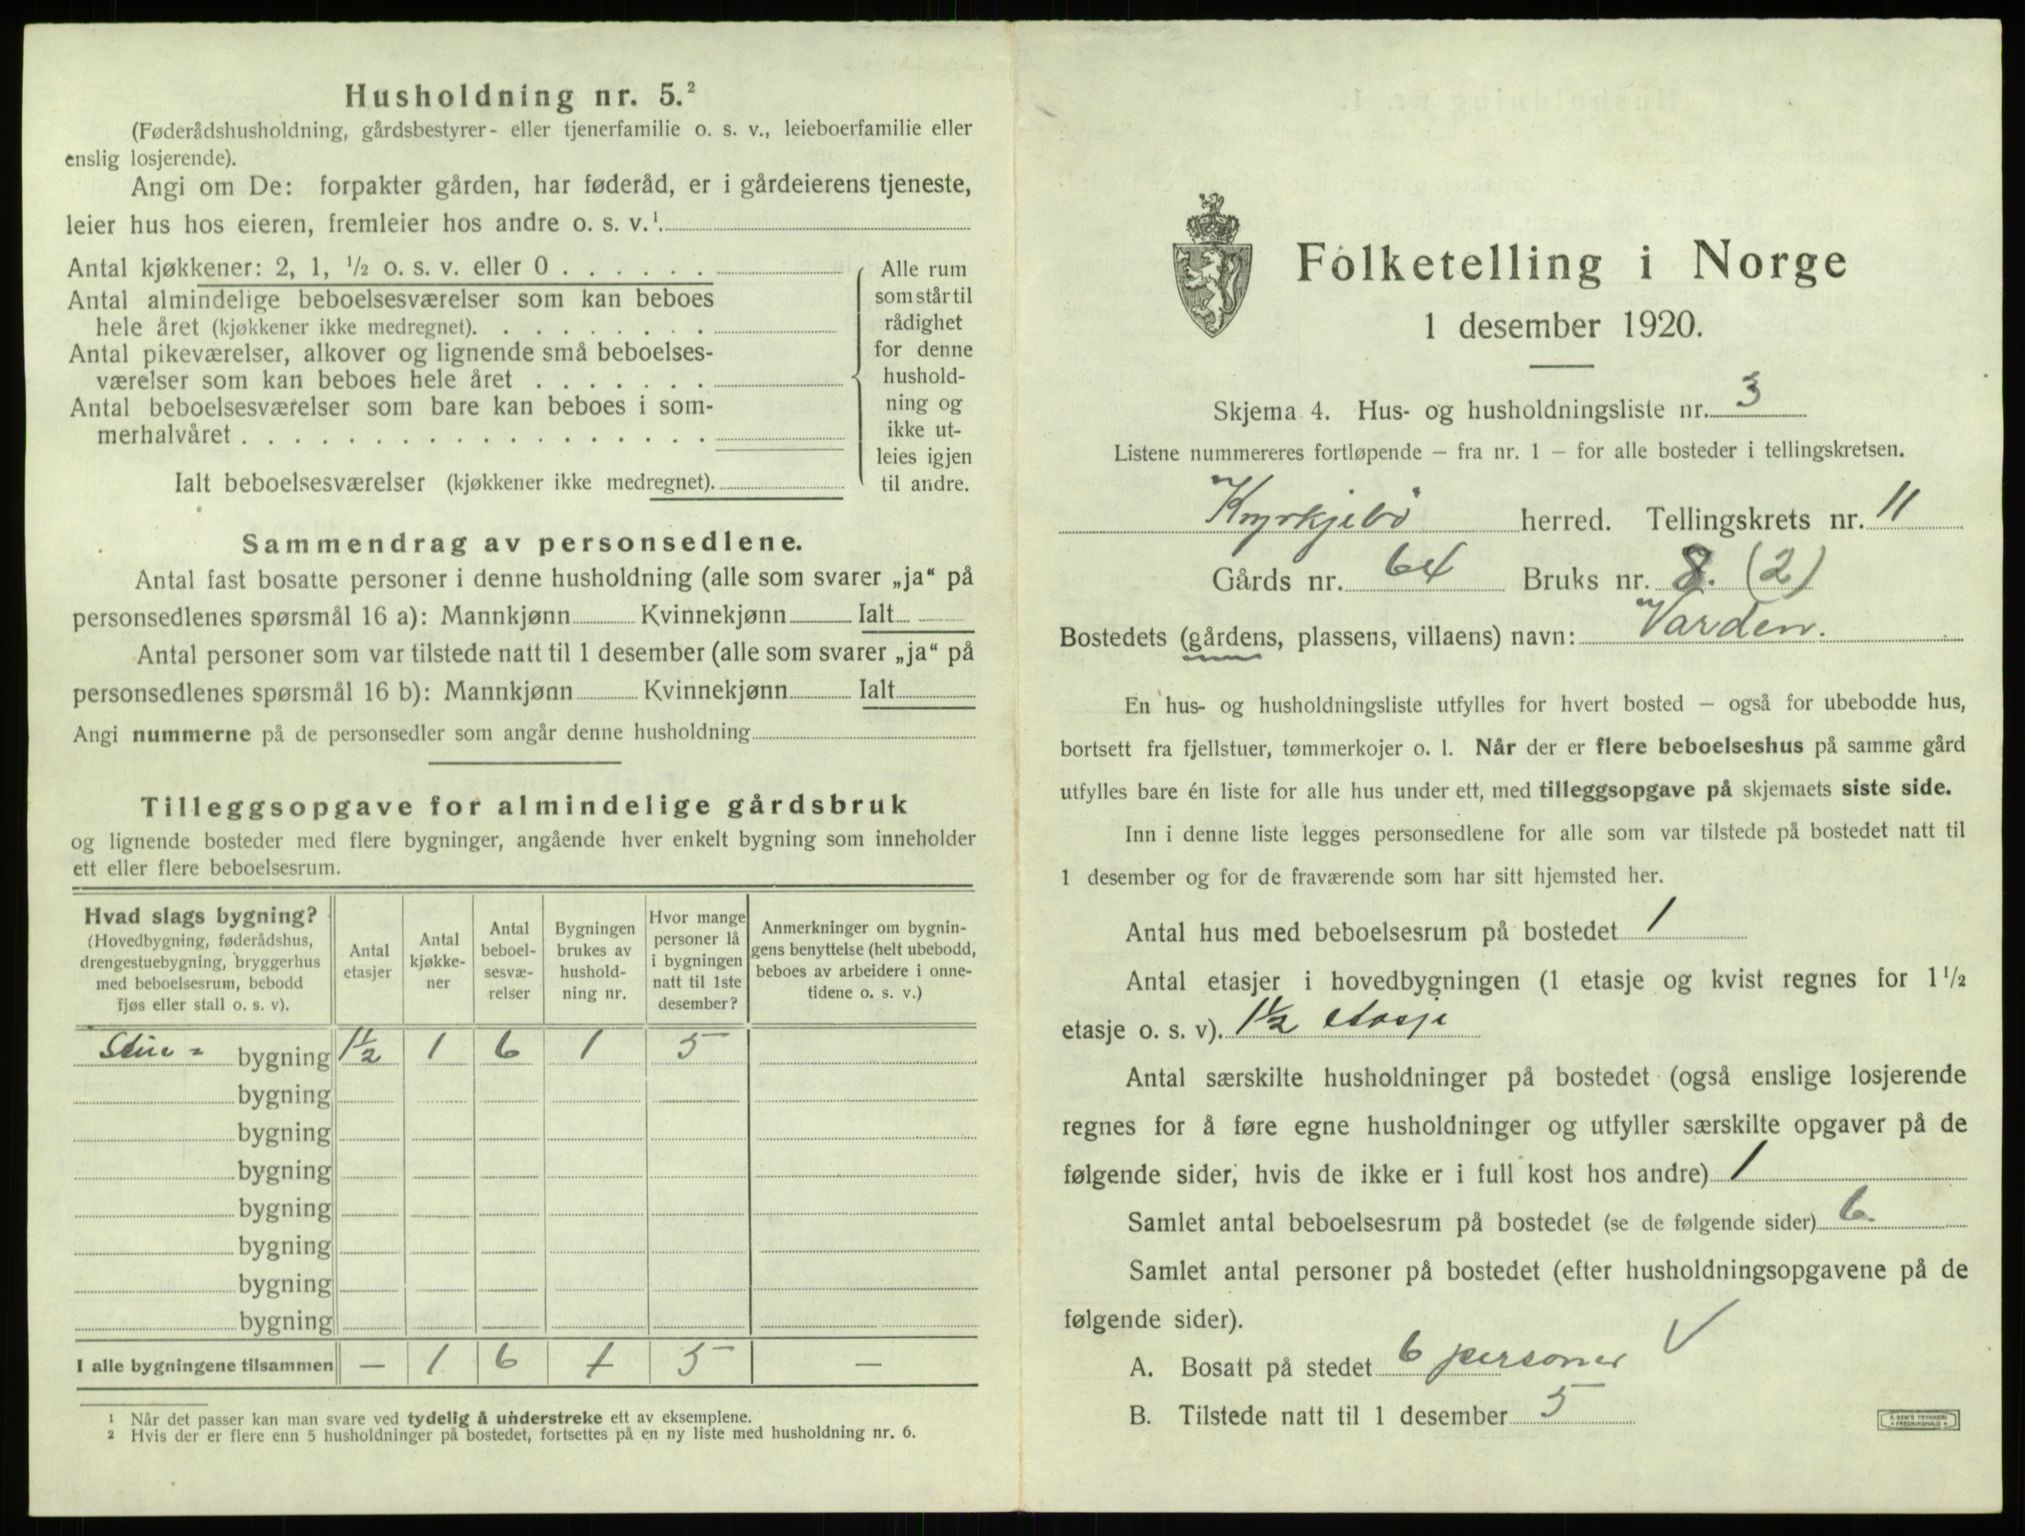 Husholdning nr. 5.²
(Føderådshusholdning, gårdsbestyrer- eller tjenerfamilie o. s. v., leieboerfamilie eller
enslig losjerende).
Angi om De: forpakter gården, har føderåd, er i gårdeierens tjeneste,
leier hus hos eieren, fremleier hos andre o. s. v.¹
Antal kjøkkener: 2, 1, ½ o. s. v. eller 0 . . . . . .
Antal almindelige beboelsesværelser som kan beboes
hele året (kjøkkener ikke medregnet). . . . . . . . .
Antal pikeværelser, alkover og lignende små beboelses-
værelser som kan beboes hele året . . . . . . .
Antal beboelsesværelser som bare kan beboes i som-
merhalvåret . . . . . . . . . . . . . . . . . .
Ialt beboelsesværelser (kjøkkener ikke medregnet).
Alle rum
som står til
rådighet
for denne
hushold-
ning og
ikke ut-
leies igjen
til andre.
Sammendrag av personsedlene.
Antal fast bosatte personer i denne husholdning (alle som svarer „ja“ på
personsedlenes spørsmål 16 a): Mannkjønn Kvinnekjønn Ialt
Antal personer som var tilstede natt til 1 desember (alle som svarer „ja“ på
personsedlenes spørsmål 16 b): Mannkjønn Kvinnekjønn Ialt
Angi nummerne på de personsedler som angår denne husholdning
Tilleggsopgave for almindelige gårdsbruk
og lignende bosteder med flere bygninger, angående hver enkelt bygning som inneholder
ett eller flere beboelsesrum.
Hvad slags bygning?
(Hovedbygning, føderådshus,
drengestuebygning, bryggerhus
med beboelsesrum, bebodd
fjøs eller stall o. s. v).
Antal
etasjer
Antal
kjøkke-
ner
Antal
beboel-
sesvæ-
relser
Bygningen
brukes av
hushold-
ning nr.
Hvor mange
personer lå
i bygningen
natt til 1ste
desember?
Anmerkninger om bygnin-
gens benyttelse (helt ubebodd,
beboes av arbeidere i onne-
tidene o. s. v.)
Stue- bygning 1½ 1 6 1 5
bygning
bygning
bygning
bygning
bygning
bygning
bygning
I alle bygningene tilsammen — 1 6 1 5 —
¹ Når det passer kan man svare ved tydelig å understreke ett av eksemplene.
² Hvis der er flere enn 5 husholdninger på bostedet, fortsettes på en ny liste med husholdning nr. 6.
Folketelling i Norge
1 desember 1920.
Skjema 4. Hus- og husholdningsliste nr. 3
Listene nummereres fortløpende — fra nr. 1 — for alle bosteder i tellingskretsen.
Kyrkjebö herred. Tellingskrets nr. 11
Gårds nr. 64 Bruks nr. 8. (2)
Bostedets (gårdens, plassens, villaens) navn: Varden.
En hus- og husholdningsliste utfylles for hvert bosted — også for ubebodde hus,
bortsett fra fjellstuer, tømmerkojer o. l. Når der er flere beboelseshus på samme gård
utfylles bare én liste for alle hus under ett, med tilleggsopgave på skjemaets siste side.
Inn i denne liste legges personsedlene for alle som var tilstede på bostedet natt til
1 desember og for de fraværende som har sitt hjemsted her.
Antal hus med beboelsesrum på bostedet 1
Antal etasjer i hovedbygningen (1 etasje og kvist regnes for 1½
etasje o. s. v). 1½ etasje
Antal særskilte husholdninger på bostedet (også enslige losjerende
regnes for å føre egne husholdninger og utfyller særskilte opgaver på de
følgende sider, hvis de ikke er i full kost hos andre) 1
Samlet antal beboelsesrum på bostedet (se de følgende sider) 6
Samlet antal personer på bostedet (efter husholdningsopgavene på de
følgende sider).
A. Bosatt på stedet 6 personer √
B. Tilstede natt til 1 desember 5
E. SEM'S TRYKKERI
FREDRIKSHALD